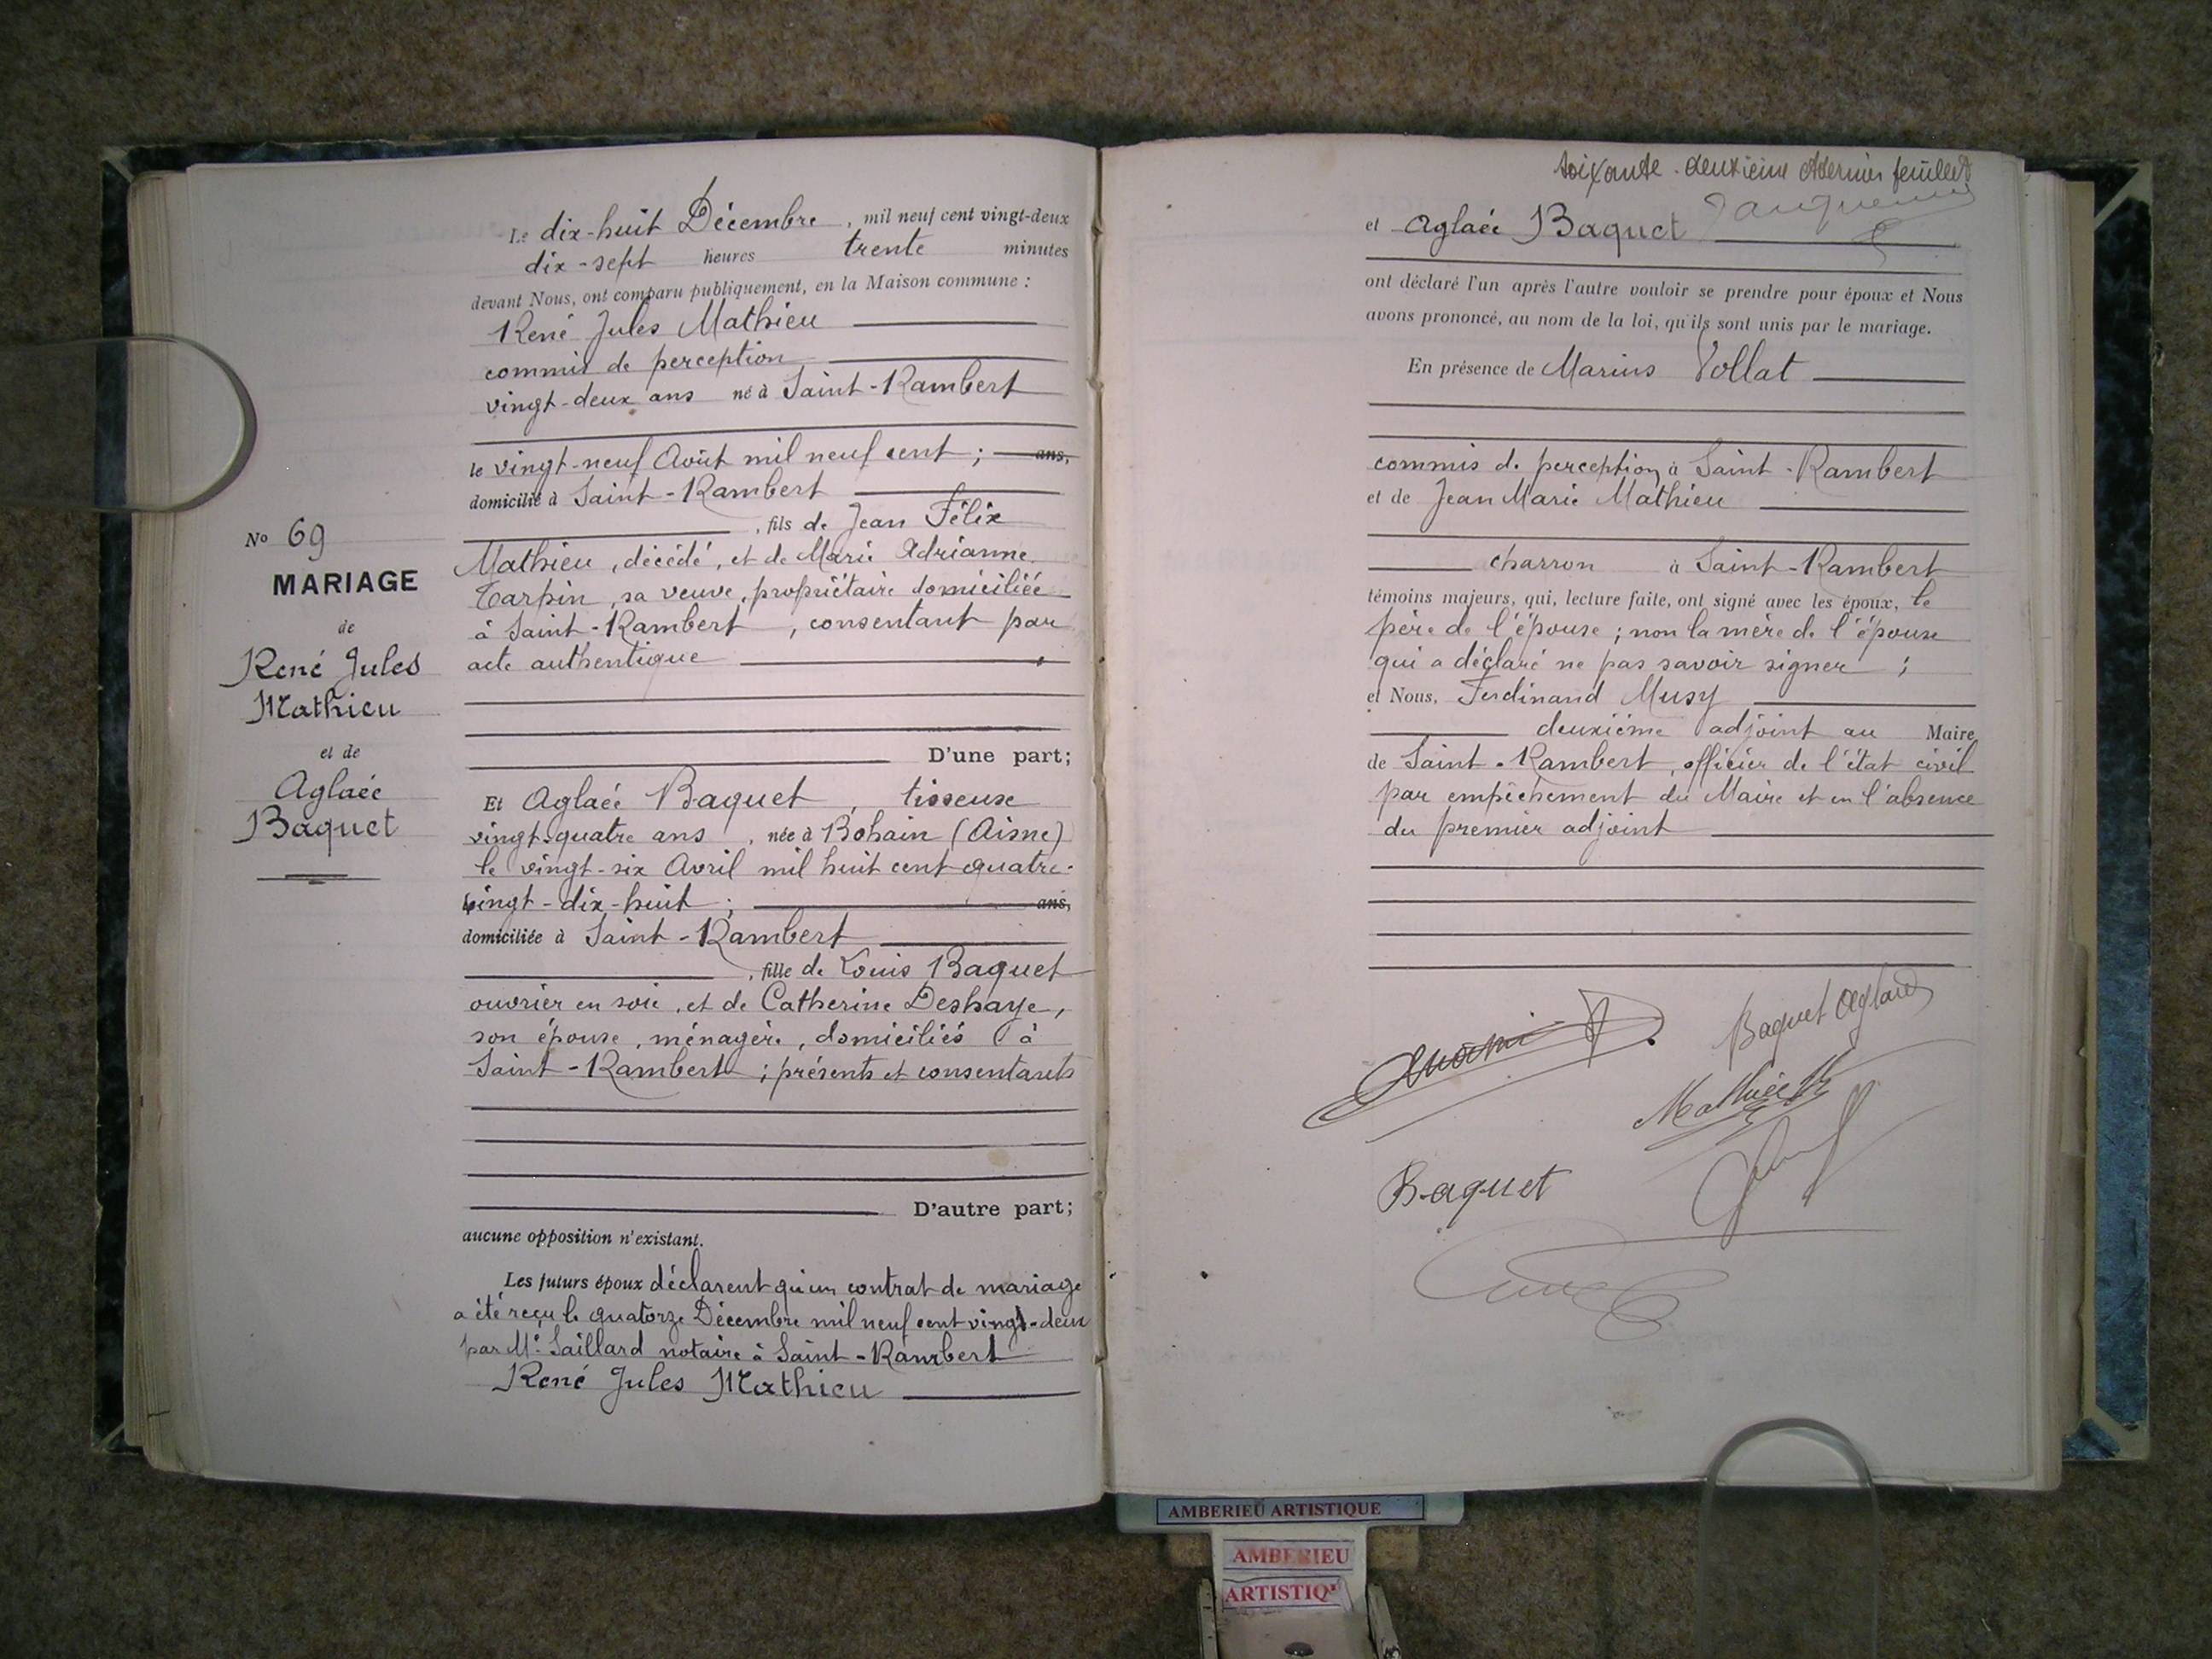 Le dix-huit Décembre, mil neuf cent vingt-deux
dix-sept heures trente minutes
devant Nous, ont comparu publiquement, en la Maison commune :
René Jules Mathieu
commis de perception
vingt-deux ans né à Saint-Rambert
le vingt-neuf Août mil neuf cent ; ans,
domicilié à Saint-Rambert
, fils de Jean Félix
Mathieu, décédé, et de Marie Adrianne
Tarpin, sa veuve, propriétaire domiciliée
à Saint-Rambert, consentant par
acte authentique
No 69
MARIAGE
de
René Jules
Mathieu
et de
Aglaée
Baquet
D'une part;
Et Aglaée Baquet, tisseuse
vingt-quatre ans, née à Bohain (Aisne)
le vingt-six Avril mil huit cent quatre-
vingt-dix-huit ; ans,
domiciliée à Saint-Rambert
, fille de Louis Baquet
ouvrier en soie, et de Catherine Deshaye,
son épouse, ménagère, domiciliés à
Saint-Rambert ; présents et consentants
D'autre part;
aucune opposition n'existant.
Les futurs époux déclarent qu'un contrat de mariage
a été reçu le quatorze Décembre mil neuf cent vingt-deux
par Me Saillard notaire à Saint-Rambert
René Jules Mathieu
soixante-deuxième et dernier feuillet
et Aglaée Baquet
ont déclaré l'un après l'autre vouloir se prendre pour époux et Nous
avons prononcé, au nom de la loi, qu'ils sont unis par le mariage.
En présence de Marius Vollat
commis de perception à Saint-Rambert
et de Jean Marie Mathieu
charron à Saint-Rambert
témoins majeurs, qui, lecture faite, ont signé avec les époux, le
père de l'épouse ; non la mère de l'épouse
qui a déclaré ne pas savoir signer ;
et Nous, Ferdinand Musy
deuxième adjoint au Maire
de Saint-Rambert, officier de l'état civil
par empêchement du Maire et en l'absence
du premier adjoint
Baquet Aglaée
Mathieu
Baquet
AMBERIEU ARTISTIQUE
AMBERIEU
ARTISTIQ